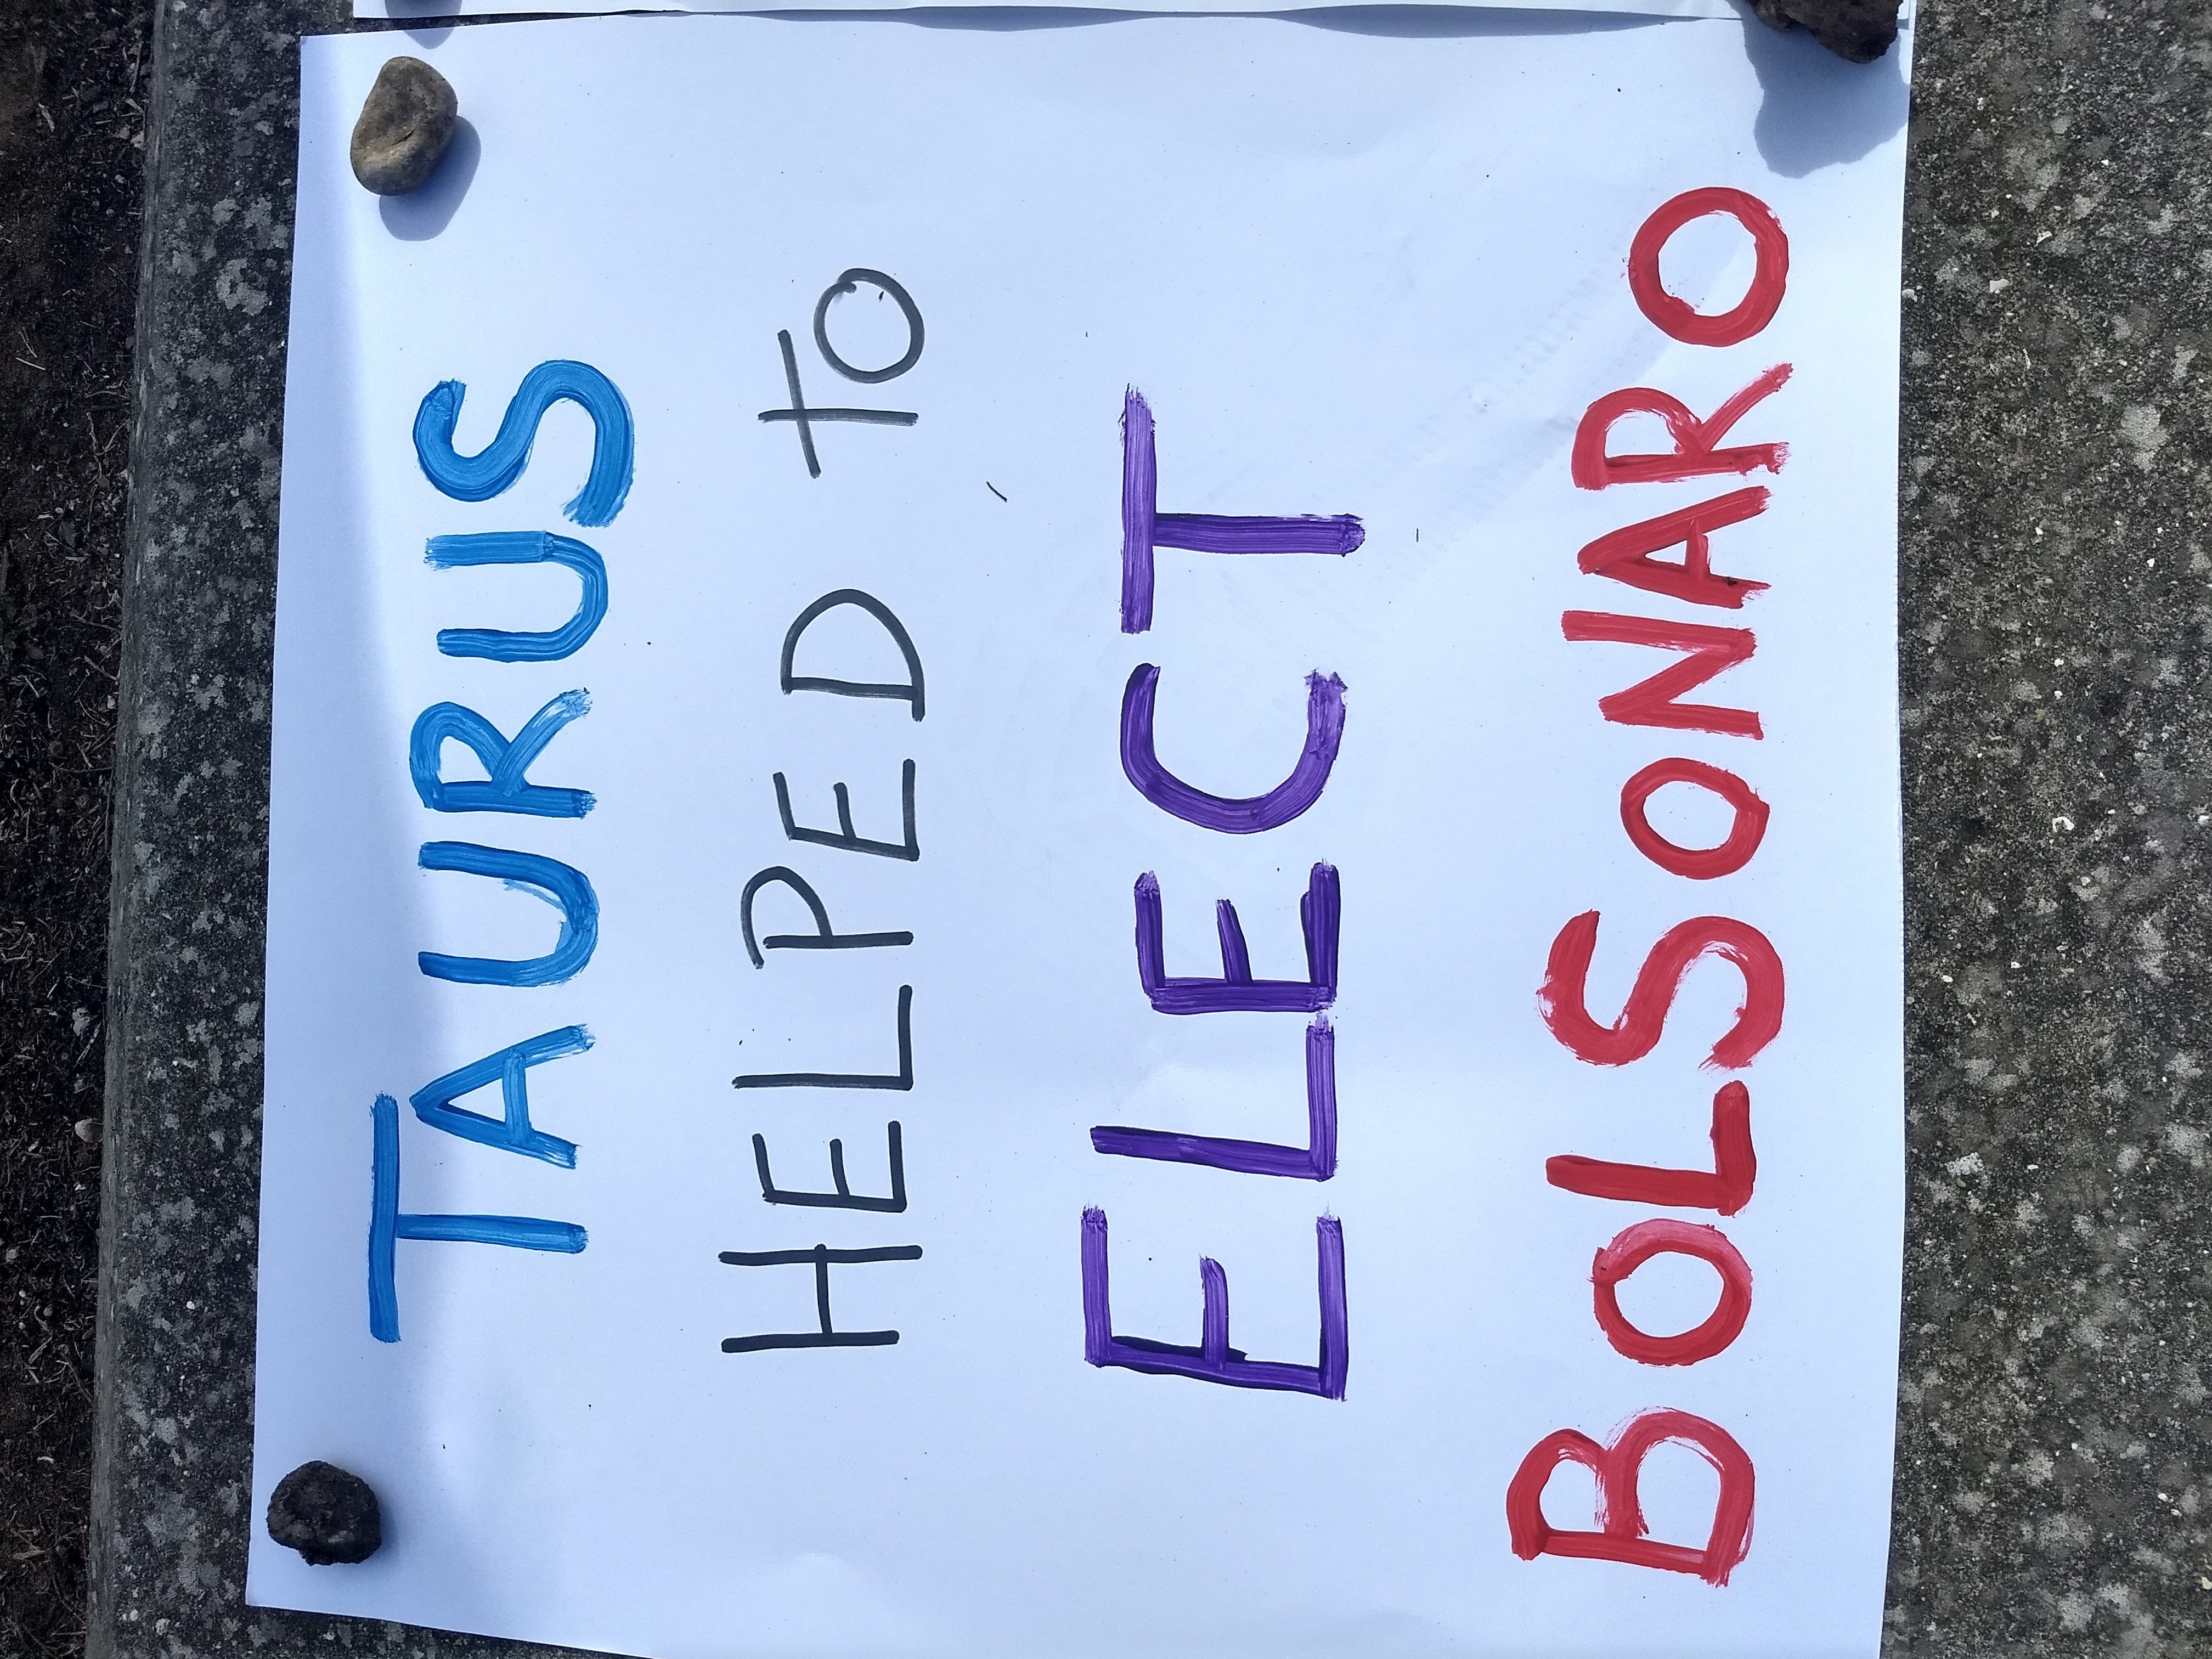 TAURUS
HELPED to
ELECT
BOLSONARO